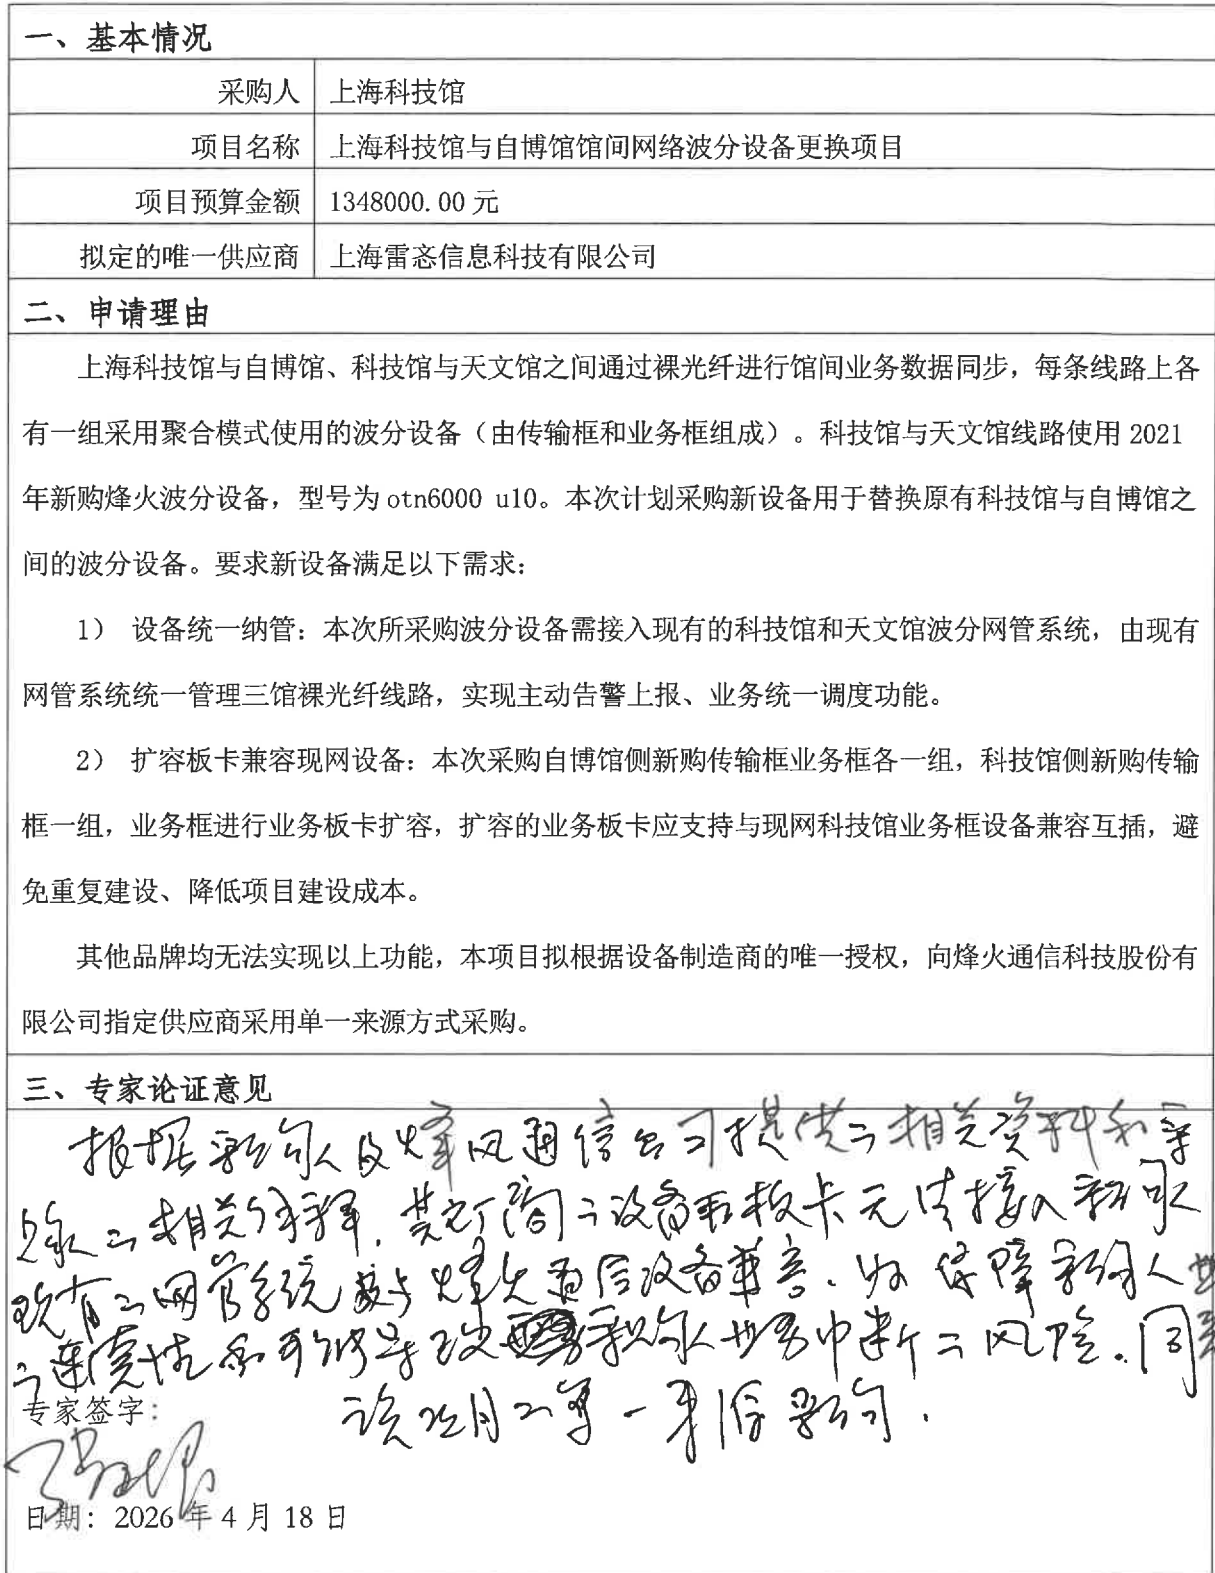 一、基本情况
采购人 上海科技馆
项目名称 上海科技馆与自博馆馆间网络波分设备更换项目
项目预算金额 1348000.00 元
拟定的唯一供应商 上海雷忞信息科技有限公司
二、申请理由
上海科技馆与自博馆、科技馆与天文馆之间通过裸光纤进行馆间业务数据同步，每条线路上各
有一组采用聚合模式使用的波分设备（由传输框和业务框组成）。科技馆与天文馆线路使用 2021
年新购烽火波分设备，型号为 otn6000 u10。本次计划采购新设备用于替换原有科技馆与自博馆之
间的波分设备。要求新设备满足以下需求：
1） 设备统一纳管：本次所采购波分设备需接入现有的科技馆和天文馆波分网管系统，由现有
网管系统统一管理三馆裸光纤线路，实现主动告警上报、业务统一调度功能。
2） 扩容板卡兼容现网设备：本次采购自博馆侧新购传输框业务框各一组，科技馆侧新购传输
框一组，业务框进行业务板卡扩容，扩容的业务板卡应支持与现网科技馆业务框设备兼容互插，避
免重复建设、降低项目建设成本。
其他品牌均无法实现以上功能，本项目拟根据设备制造商的唯一授权，向烽火通信科技股份有
限公司指定供应商采用单一来源方式采购。
三、专家论证意见
根据采购人及烽火通信公司提供之相关资料和
之相关解释，其它厂商之设备和板卡无法接入
现有之网管系统或与烽火通信设备兼容。为保障采购人
之连续性和可能导致采购人业务中断之风险。同
专家签字：
该项目之单一来源采购.
日期：2026 年 4 月 18 日